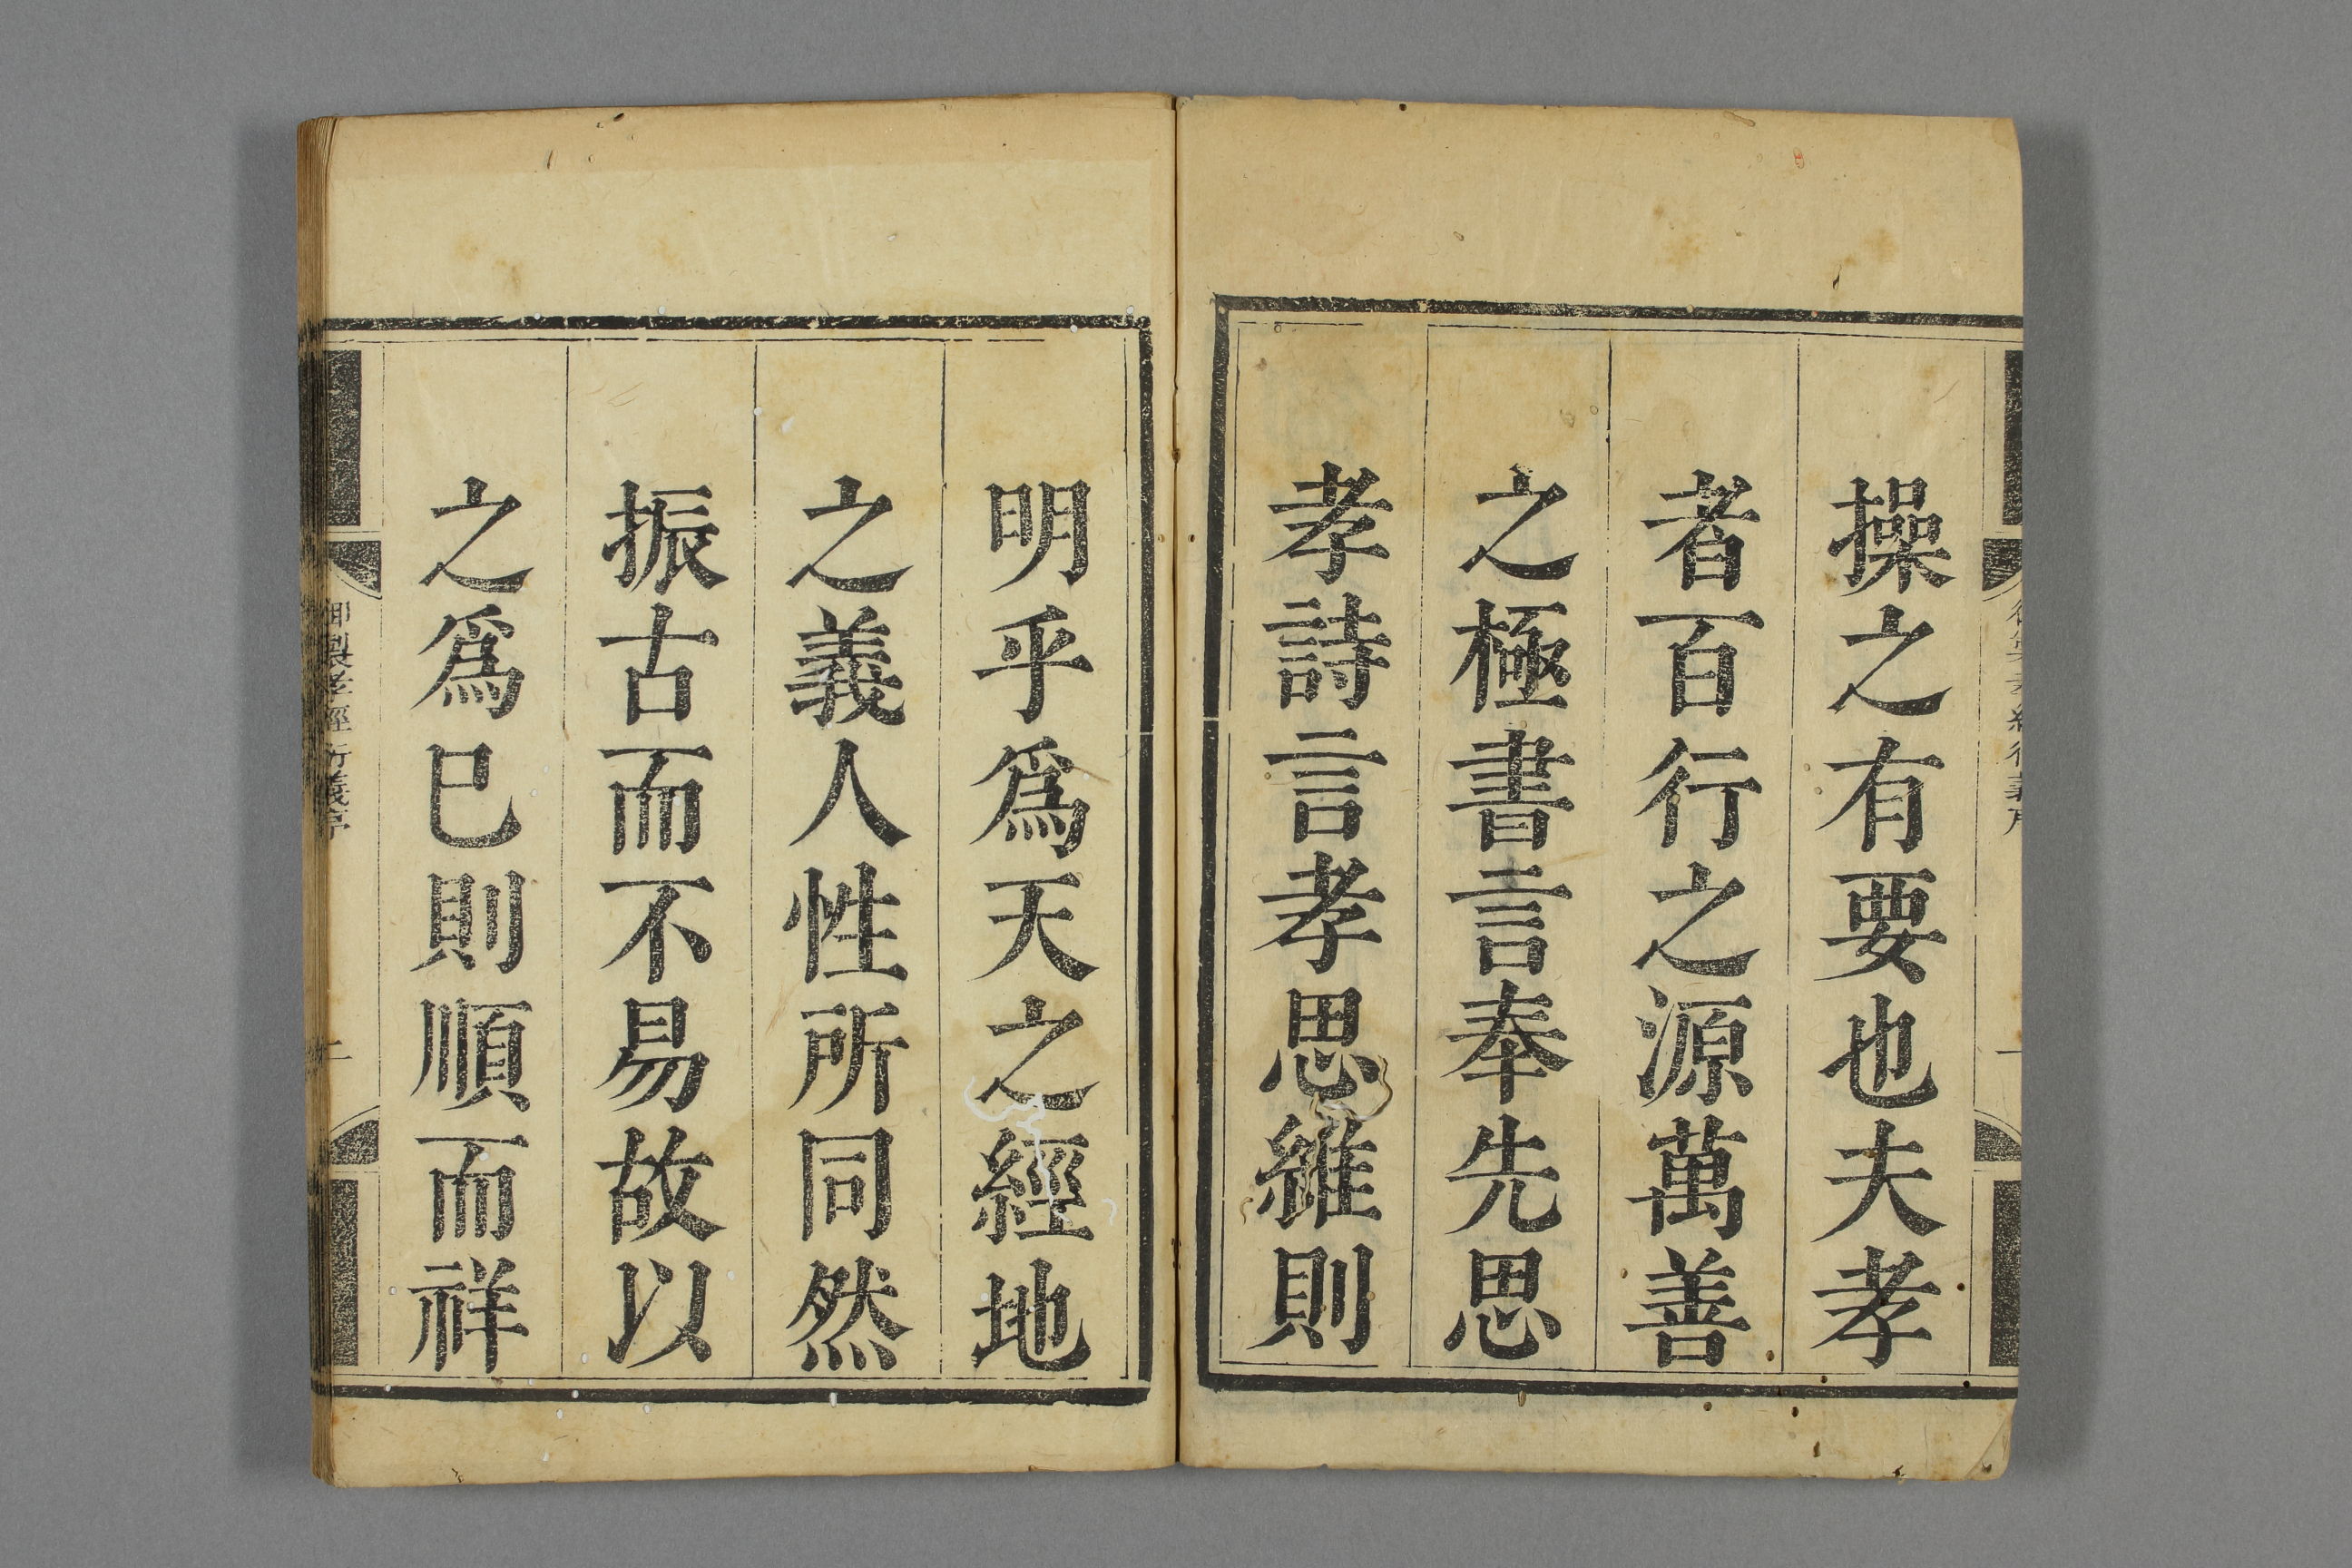 操之有要也夫孝
者百行之源萬善
之極書言奉先思
孝詩言孝思維則
明乎爲天之經地
之義人性所同然
振古而不易故以
之爲已則順而祥
御製孝經衍義序
二